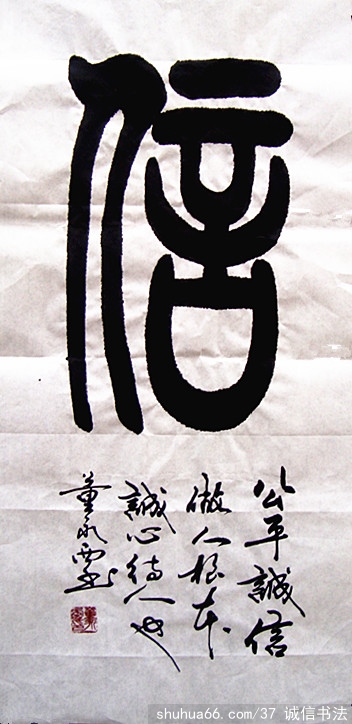 信
公平誠信
做人根本
誠心待人也
董永
shuhua66.com/37 诚信书法